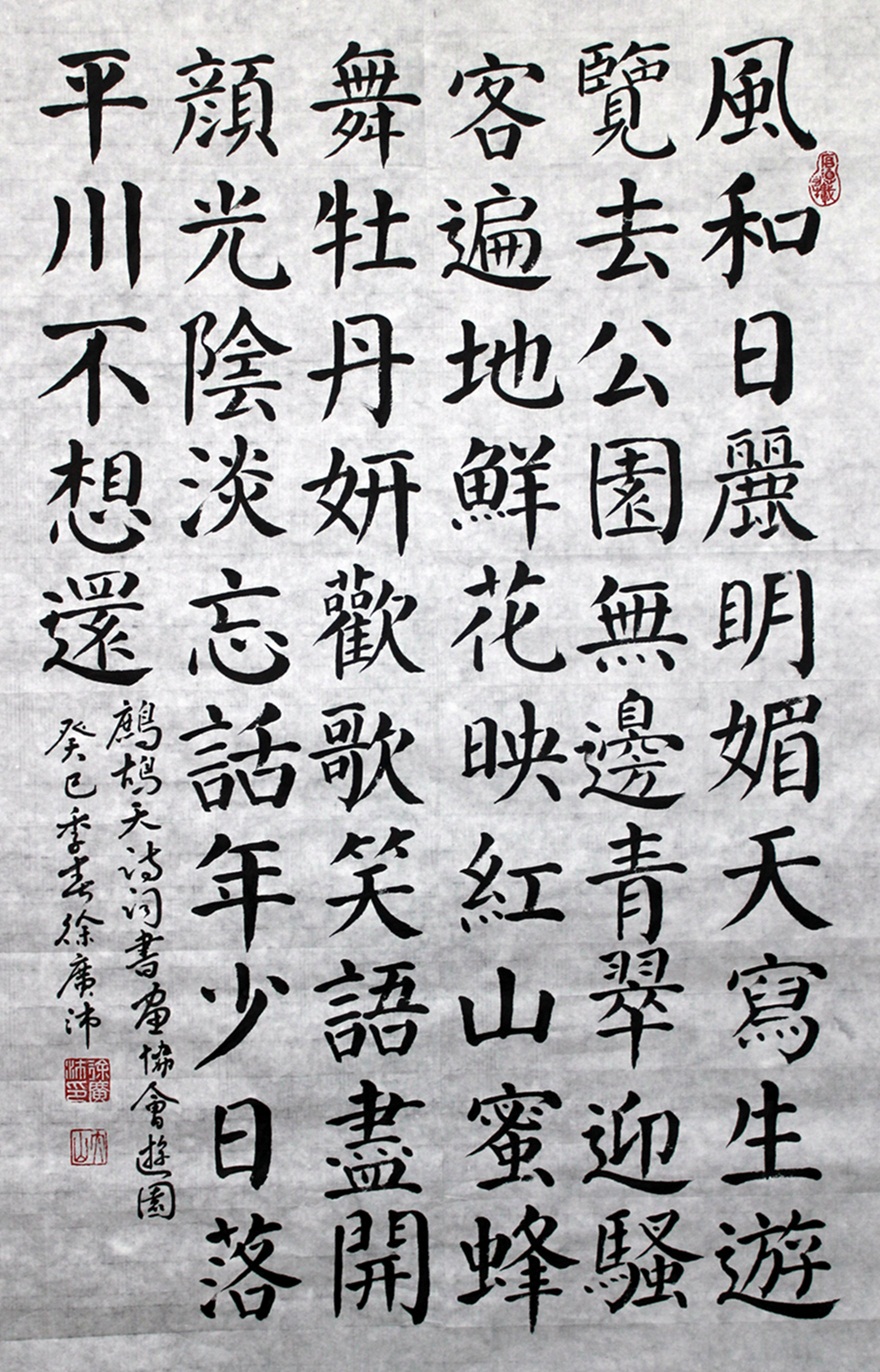 風和日麗明媚天寫生遊
覽去公園無邊青翠迎騷
客遍地鮮花映紅山蜜蜂
舞牡丹妍歡歌笑語盡開
顏光陰淡忘話年少日落
平川不想還
鷓鴣天诗词書画協會遊園
癸巳季春徐廣沛
徐廣沛印